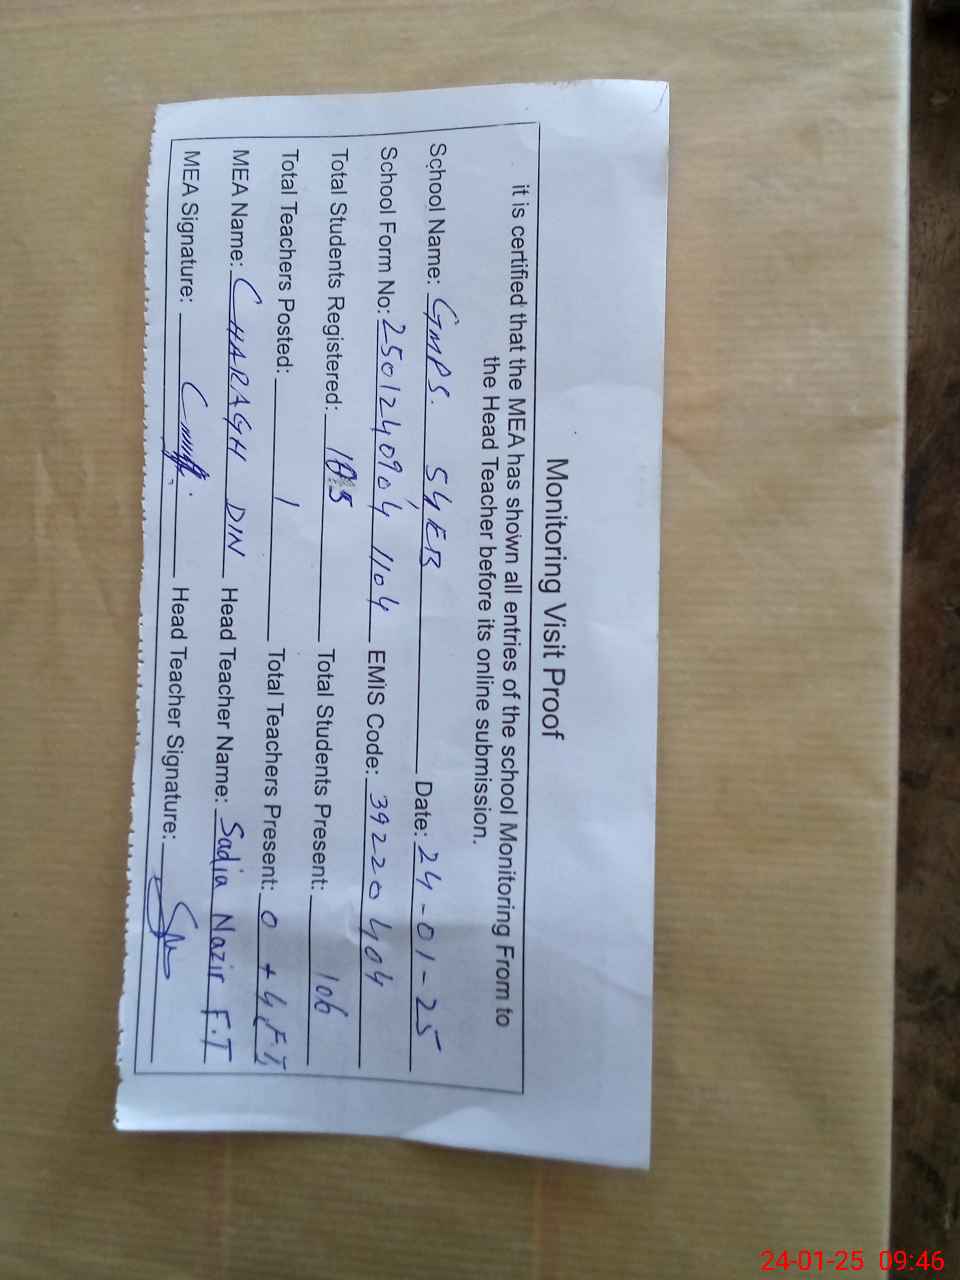 Monitoring Visit Proof
it is certified that the MEA has shown all entries of the school Monitoring From to
the Head Teacher before its online submission.
School Name: GMPS. 54EB Date: 24-01-25
School Form No: 2501240904 1104 EMIS Code: 39220404
Total Students Registered: Total Students Present: 106
Total Teachers Posted: 1 Total Teachers Present: 0 + 4 F.T
MEA Name: CHARAGH DIN Head Teacher Name: Sadia Nazir F.T
MEA Signature: Head Teacher Signature:
24-01-25 09:46